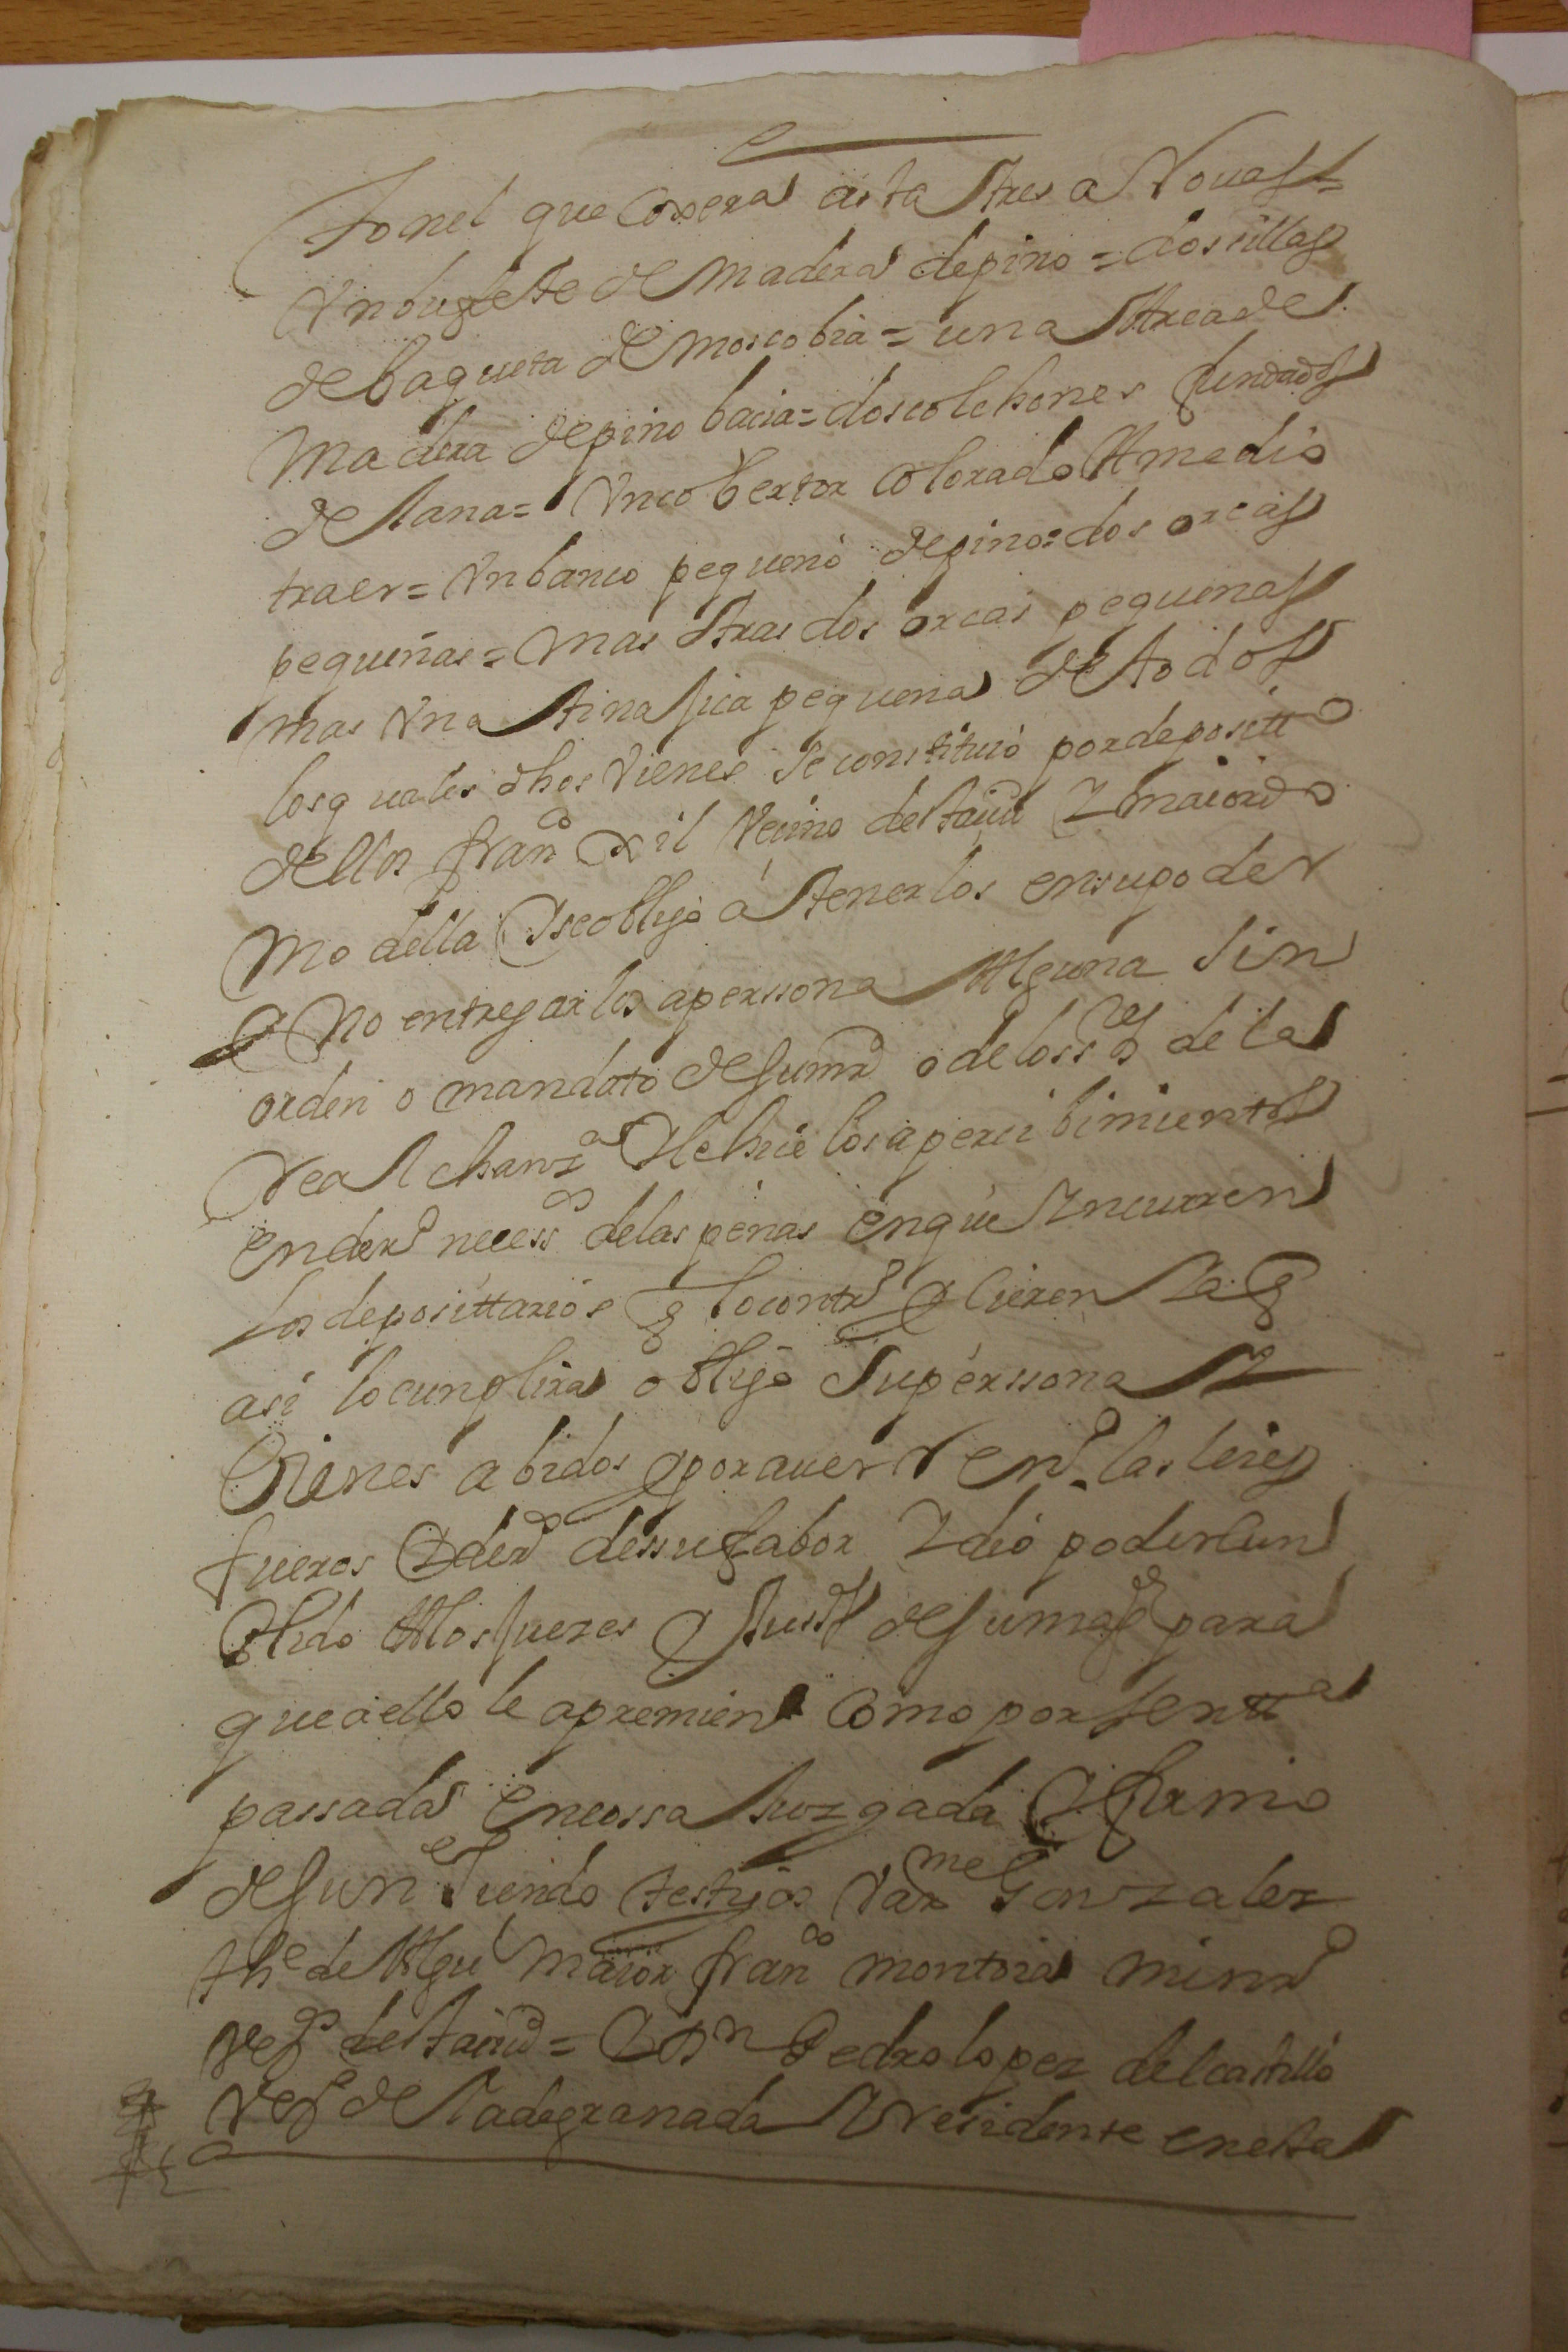 tonel que coxera asta tres aRouas =
Vn bufete de madera de pino = dos sillas
de baqueta de moscobia = una Arca de
madera de pino bacia = dos colchones fundados
de lana = Vn cobertor colorado A medio
traer = Vn banco pequeno de pino = dos orcas
pequeñas = mas otras dos orcas pequenas
mas Vna tinajica pequena de todos
los quales dhos Vienes se constituió por depositto
dellos franco xil Vecino desta ciud Y maiordo
mo della Y se obligo á tenerlos en su poder
Y no entregarlos a perssona Alguna sin
orden o mandato de su md o de los sres de la
Real chanza Y le hice los apercibimientos
en derº necessos de las penas en que Yncurren
los deposittarios q lo contrº hicieren Ya q
asi lo cunplira obligó su perssona Y
Vienes abidos y por auer Renº las leies
fueros Y derº de su fabor Y dió poder cun
plido A los Juezes Y Justas de su magd para
que a ello le apremien como por sentta
passada en cossa Juzgada Y firmo
de su ne siendo testigos Barme Gonzalez
the de Algul maior franco montoia minrº
Veos desta ciud = Y Dn Pedro lopez del castillo
Veo de la de granada Y residente en esta